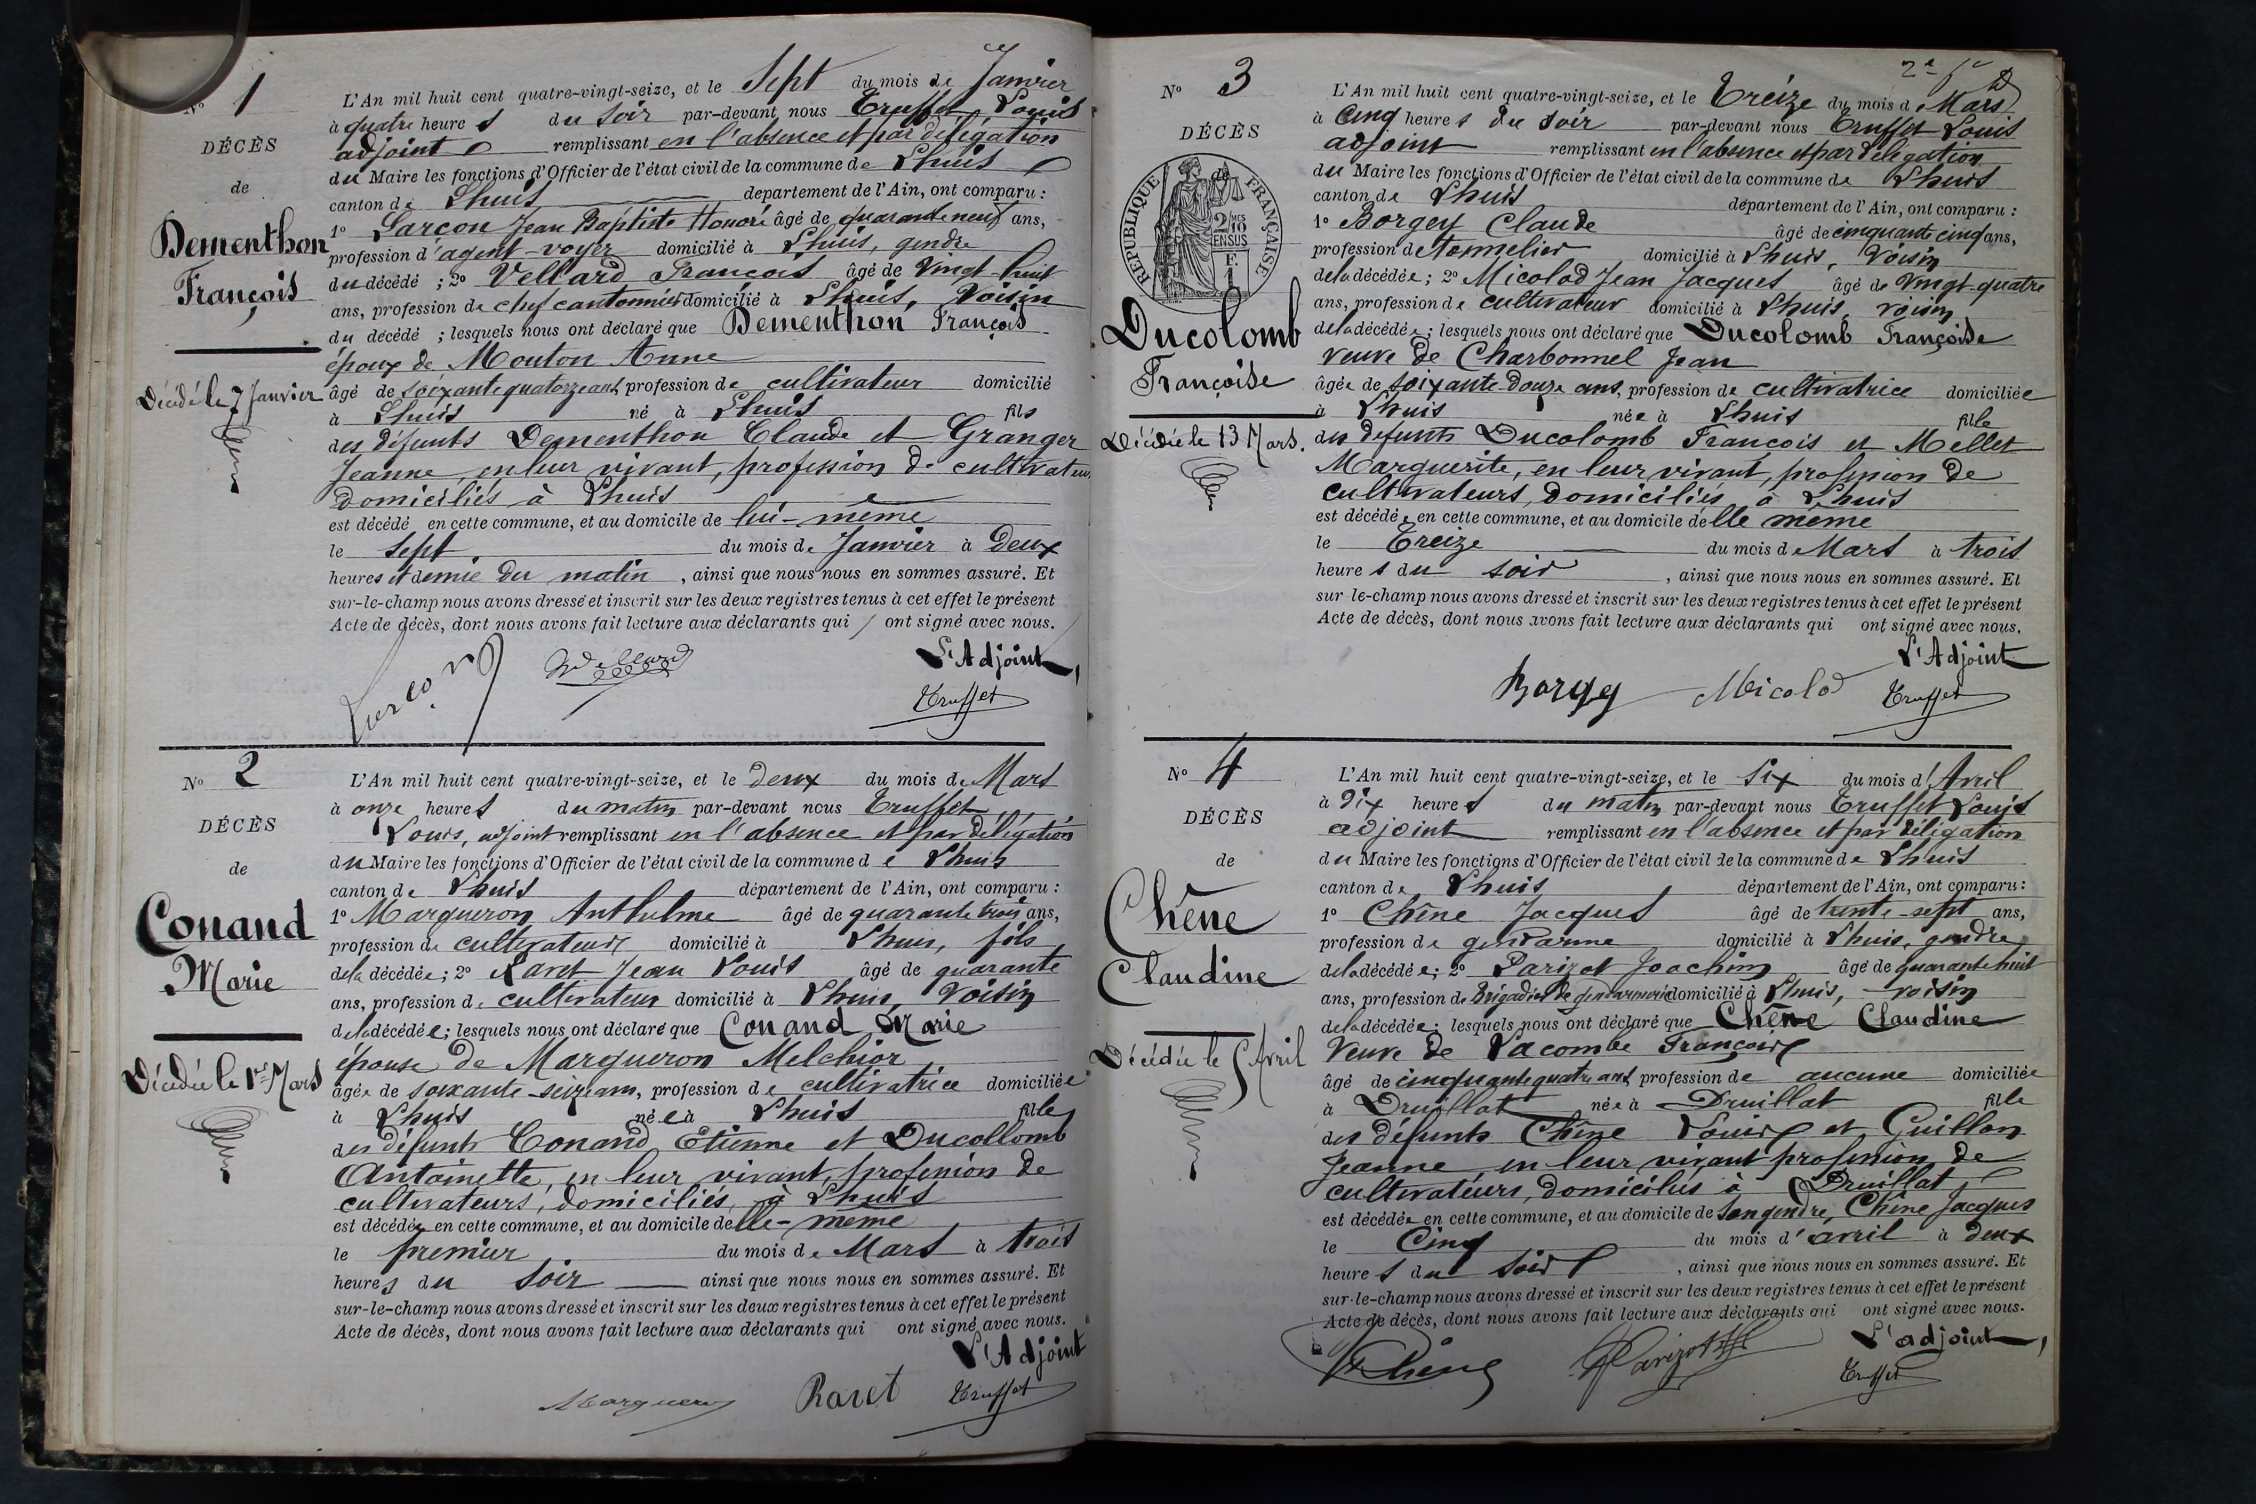 No 1
DÉCÈS
de
Dementhon
François
Décédé le 7 Janvier
L'An mil huit cent quatre-vingt-seize, et le Sept du mois de Janvier
à quatre heures du soir par-devant nous Truffet Louis
adjoint remplissant en l'absence et par délégation
du Maire les fonctions d'Officier de l'état civil de la commune de Lhuis
canton de Lhuis département de l'Ain, ont comparu :
1° Larçon Jean Baptiste Honoré âgé de quarante neuf ans,
profession d'agent-voyer domicilié à Lhuis, gendre
du décédé ; 2° Vellard François âgé de Vingt-huit
ans, profession de chef cantonnier domicilié à Lhuis, Voisin
du décédé ; lesquels nous ont déclaré que Dementhon François
époux de Mouton Anne
âgé de soixante quatorze ans, profession de cultivateur domicilié
à Lhuis né à Lhuis fils
des défunts Dementhon Claude et Granger
Jeanne, en leur vivant, profession de cultivateurs
domiciliés à Lhuis
est décédé en cette commune, et au domicile de lui-même
le sept du mois de Janvier à deux
heures et demie du matin, ainsi que nous nous en sommes assuré. Et
sur-le-champ nous avons dressé et inscrit sur les deux registres tenus à cet effet le présent
Acte de décès, dont nous avons fait lecture aux déclarants qui ont signé avec nous.
L'Adjoint,
Larçon Vellard Truffet
No 2
DÉCÈS
de
Conand
Marie
Décédée le 1er Mars
L'An mil huit cent quatre-vingt-seize, et le deux du mois de Mars
à onze heures du matin par-devant nous Truffet
Louis, adjoint remplissant en l'absence et par délégation
du Maire les fonctions d'Officier de l'état civil de la commune de Lhuis
canton de Lhuis département de l'Ain, ont comparu :
1° Margueron Anthelme âgé de quarante trois ans,
profession de cultivateur domicilié à Lhuis, fils
de la décédée ; 2° Ravet Jean Louis âgé de quarante
ans, profession de cultivateur domicilié à Lhuis, Voisin
de la décédée ; lesquels nous ont déclaré que Conand Marie
épouse de Margueron Melchior
âgée de soixante-seize ans, profession de cultivatrice domiciliée
à Lhuis née à Lhuis fille
des défunts Conand Etienne et Ducollomb
Antoinette, en leur vivant, profession de
cultivateurs, domiciliés, à Lhuis
est décédée en cette commune, et au domicile d'elle-même
le premier du mois de Mars à trois
heures du soir ainsi que nous nous en sommes assuré. Et
sur-le-champ nous avons dressé et inscrit sur les deux registres tenus à cet effet le présent
Acte de décès, dont nous avons fait lecture aux déclarants qui ont signé avec nous.
L'Adjoint
Margueron Ravet Truffet
No 3
DÉCÈS
de
RÉPUBLIQUE FRANÇAISE
2 MES 10
EN SUS
F.
1
Ducolomb
Françoise
Décédée le 13 Mars.
L'An mil huit cent quatre-vingt-seize, et le Treize du mois de Mars
à Cinq heures du soir par-devant nous Truffet Louis
adjoint remplissant en l'absence et par délégation
du Maire les fonctions d'Officier de l'état civil de la commune de Lhuis
canton de Lhuis département de l'Ain, ont comparu :
1° Borgey Claude âgé de cinquante cinq ans,
profession de tonnelier domicilié à Lhuis, Voisin
de la décédée ; 2° Micolod Jean Jacques âgé de Vingt-quatre
ans, profession de cultivateur domicilié à Lhuis, voisin
de la décédée ; lesquels nous ont déclaré que Ducolomb Françoise
veuve de Charbonnel Jean
âgée de soixante-douze ans, profession de cultivatrice domiciliée
à Lhuis née à Lhuis fille
des défunts Ducolomb François et Mellet
Marguerite, en leur vivant, profession de
cultivateurs, domiciliés à Lhuis
est décédée en cette commune, et au domicile d'elle même
le Treize du mois de Mars à trois
heures du soir, ainsi que nous nous en sommes assuré. Et
sur-le-champ nous avons dressé et inscrit sur les deux registres tenus à cet effet le présent
Acte de décès, dont nous avons fait lecture aux déclarants qui ont signé avec nous.
L'Adjoint
Borgey Micolod Truffet
No 4
DÉCÈS
de
Chêne
Claudine
Décédée le 5 Avril
L'An mil huit cent quatre-vingt-seize, et le six du mois d'Avril
à dix heures du matin par-devant nous Truffet Louis
adjoint remplissant en l'absence et par délégation
du Maire les fonctions d'Officier de l'état civil de la commune de Lhuis
canton de Lhuis département de l'Ain, ont comparu :
1° Chêne Jacques âgé de trente-sept ans,
profession de gendarme domicilié à Lhuis, gendre
de la décédée ; 2° Parizot Joachim âgé de quarante huit
ans, profession de Brigadier de gendarmerie domicilié à Lhuis, voisin
de la décédée ; lesquels nous ont déclaré que Chêne Claudine
Veuve de Lacombe François
âgé de cinquante quatre ans profession de aucune domiciliée
à Druillat née à Druillat fille
des défunts Chêne Louis et Guillon
Jeanne, en leur vivant profession de
cultivateurs, domiciliés à Druillat
est décédée en cette commune, et au domicile de son gendre, Chêne Jacques
le Cinq du mois d'avril à deux
heures du soir, ainsi que nous nous en sommes assuré. Et
sur-le-champ nous avons dressé et inscrit sur les deux registres tenus à cet effet le présent
Acte de décès, dont nous avons fait lecture aux déclarants qui ont signé avec nous.
L'adjoint,
Chêne Parizot Truffet